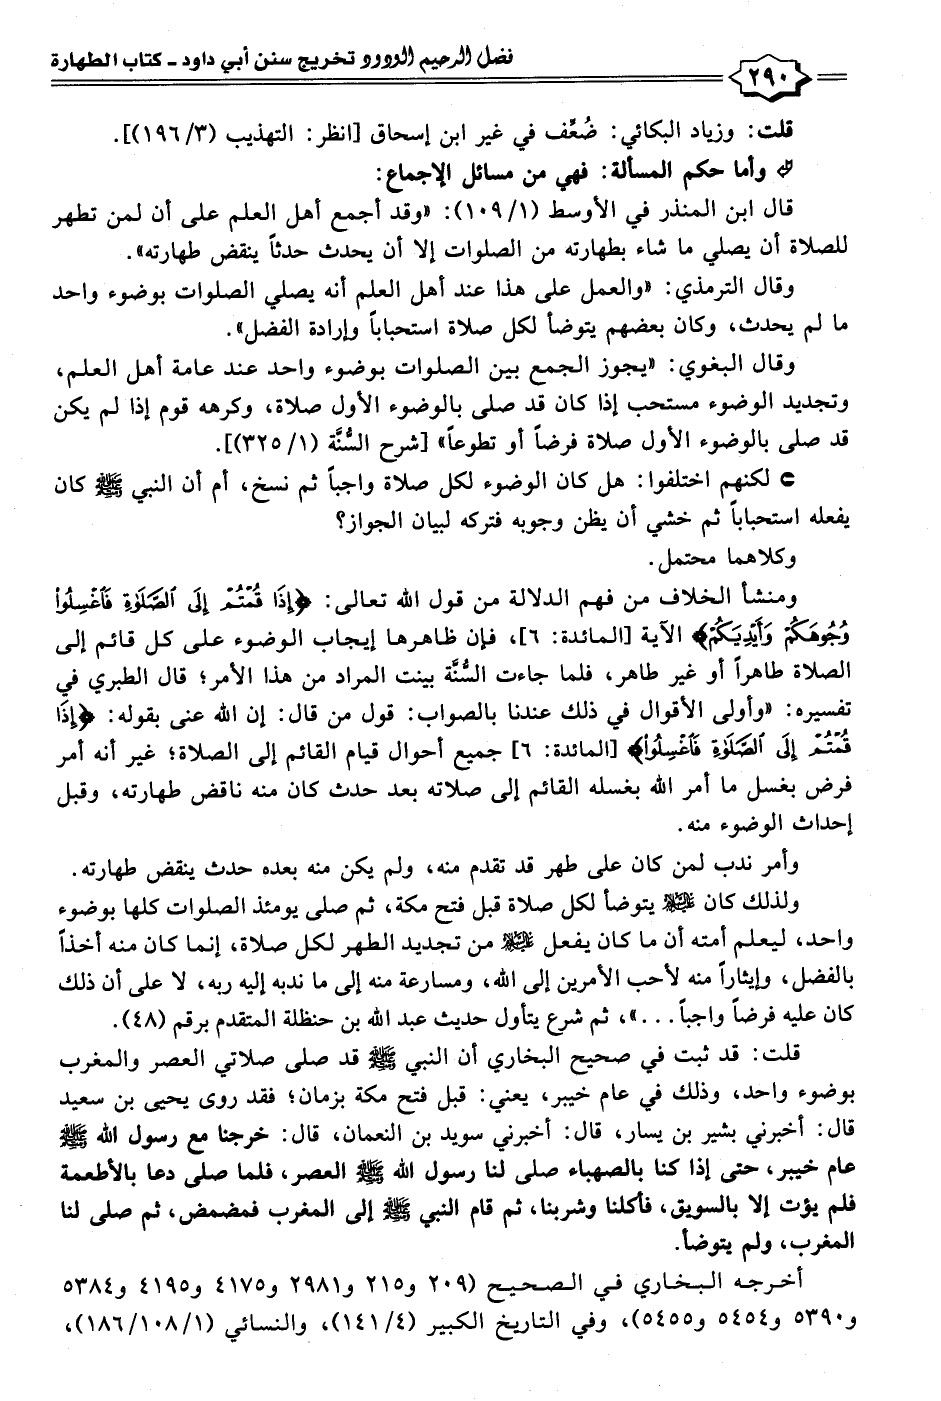 فضل الرحيم الودود تخريج سنن أبي داود - كتاب الطهارة
٢٩٠
قلت: وزياد البكائي: ضُعِّف في غير ابن إسحاق [انظر: التهذيب (١٩٦/٣)].
وأما حكم المسألة: فهي من مسائل الإجماع:
قال ابن المنذر في الأوسط (١٠٩/١): «وقد أجمع أهل العلم على أن لمن تطهر
للصلاة أن يصلي ما شاء بطهارته من الصلوات إلا أن يحدث حدثاً ينقض طهارته».
وقال الترمذي: «والعمل على هذا عند أهل العلم أنه يصلي الصلوات بوضوء واحد
ما لم يحدث، وكان بعضهم يتوضأ لكل صلاة استحباباً وإرادة الفضل».
وقال البغوي: «يجوز الجمع بين الصلوات بوضوء واحد عند عامة أهل العلم،
وتجديد الوضوء مستحب إذا كان قد صلى بالوضوء الأول صلاة، وكرهه قوم إذا لم يكن
قد صلى بالوضوء الأول صلاة فرضاً أو تطوعاً» [شرح السُّنَّة (٣٢٥/١)].
لكنهم اختلفوا: هل كان الوضوء لكل صلاة واجباً ثم نسخ، أم أن النبي ﷺ كان
يفعله استحباباً ثم خشي أن يظن وجوبه فتركه لبيان الجواز؟
وكلاهما محتمل.
ومنشأ الخلاف من فهم الدلالة من قول الله تعالى: ﴿إِذَا قُمْتُمْ إِلَى ٱلصَّلَوٰةِ فَٱغْسِلُوا۟
وُجُوهَكُمْ وَأَيْدِيَكُمْ﴾ الآية [المائدة: ٦]، فإن ظاهرها إيجاب الوضوء على كل قائم إلى
الصلاة طاهراً أو غير طاهر، فلما جاءت السُّنَّة بينت المراد من هذا الأمر؛ قال الطبري في
تفسيره: «وأولى الأقوال في ذلك عندنا بالصواب: قول من قال: إن الله عنى بقوله: ﴿إِذَا
قُمْتُمْ إِلَى ٱلصَّلَوٰةِ فَٱغْسِلُوا۟﴾ [المائدة: ٦] جميع أحوال قيام القائم إلى الصلاة؛ غير أنه أمر
فرض بغسل ما أمر الله بغسله القائم إلى صلاته بعد حدث كان منه ناقض طهارته، وقبل
إحداث الوضوء منه.
وأمر ندب لمن كان على طهر قد تقدم منه، ولم يكن منه بعده حدث ينقض طهارته.
ولذلك كان ﷺ يتوضأ لكل صلاة قبل فتح مكة، ثم صلى يومئذ الصلوات كلها بوضوء
واحد، ليعلم أمته أن ما كان يفعل ﷺ من تجديد الطهر لكل صلاة، إنما كان منه أخذاً
بالفضل، وإيثاراً منه لأحب الأمرين إلى الله، ومسارعة منه إلى ما ندبه إليه ربه، لا على أن ذلك
كان عليه فرضاً واجباً...»، ثم شرع يتأول حديث عبد الله بن حنظلة المتقدم برقم (٤٨).
قلت: قد ثبت في صحيح البخاري أن النبي ﷺ قد صلى صلاتي العصر والمغرب
بوضوء واحد، وذلك في عام خيبر، يعني: قبل فتح مكة بزمان؛ فقد روى يحيى بن سعيد
قال: أخبرني بشير بن يسار، قال: أخبرني سويد بن النعمان، قال: خرجنا مع رسول الله ﷺ
عام خيبر، حتى إذا كنا بالصهباء صلى لنا رسول الله ﷺ العصر، فلما صلى دعا بالأطعمة
فلم يؤت إلا بالسويق، فأكلنا وشربنا، ثم قام النبي ﷺ إلى المغرب فمضمض، ثم صلى لنا
المغرب، ولم يتوضأ.
أخرجه البخاري في الصحيح (٢٠٩ و٢١٥ و٢٩٨١ و٤١٧٥ و٤١٩٥ و٥٣٨٤
و٥٣٩٠ و٥٤٥٤ و٥٤٥٥)، وفي التاريخ الكبير (١٤١/٤)، والنسائي (١٨٦/١٠٨/١)،